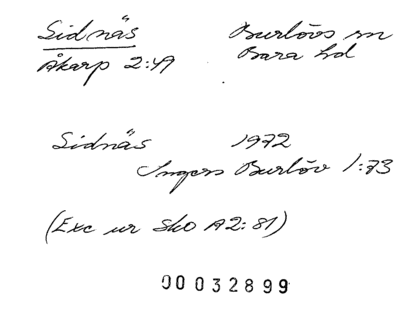 Sidnäs Burlövs sn
Åkarp 2:49 Bara hd
Sidnäs 1972
Ingers Burlöv 1:73
(Exc ur Sko A2:81)
00032899